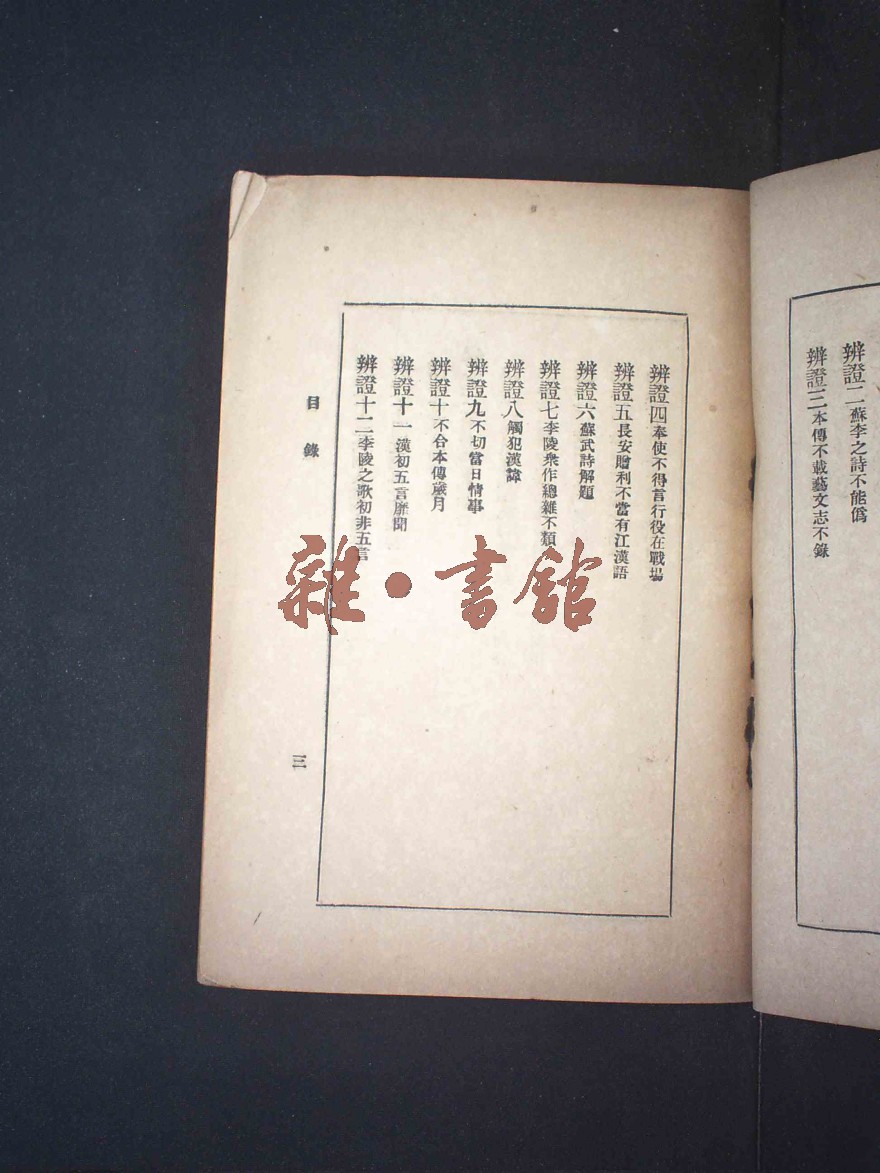 辨證二蘇李之詩不能僞
辨證三本傳不載藝文志不錄
辨證四奉使不得言行役在戰場
辨證五長安贈別不當有江漢語
辨證六蘇武詩解題
辨證七李陵衆作總雜不類
辨證八觸犯漢諱
辨證九不切當日情事
辨證十不合本傳歲月
辨證十一漢初五言靡聞
辨證十二李陵之歌初非五言
目錄
三
雜·書館